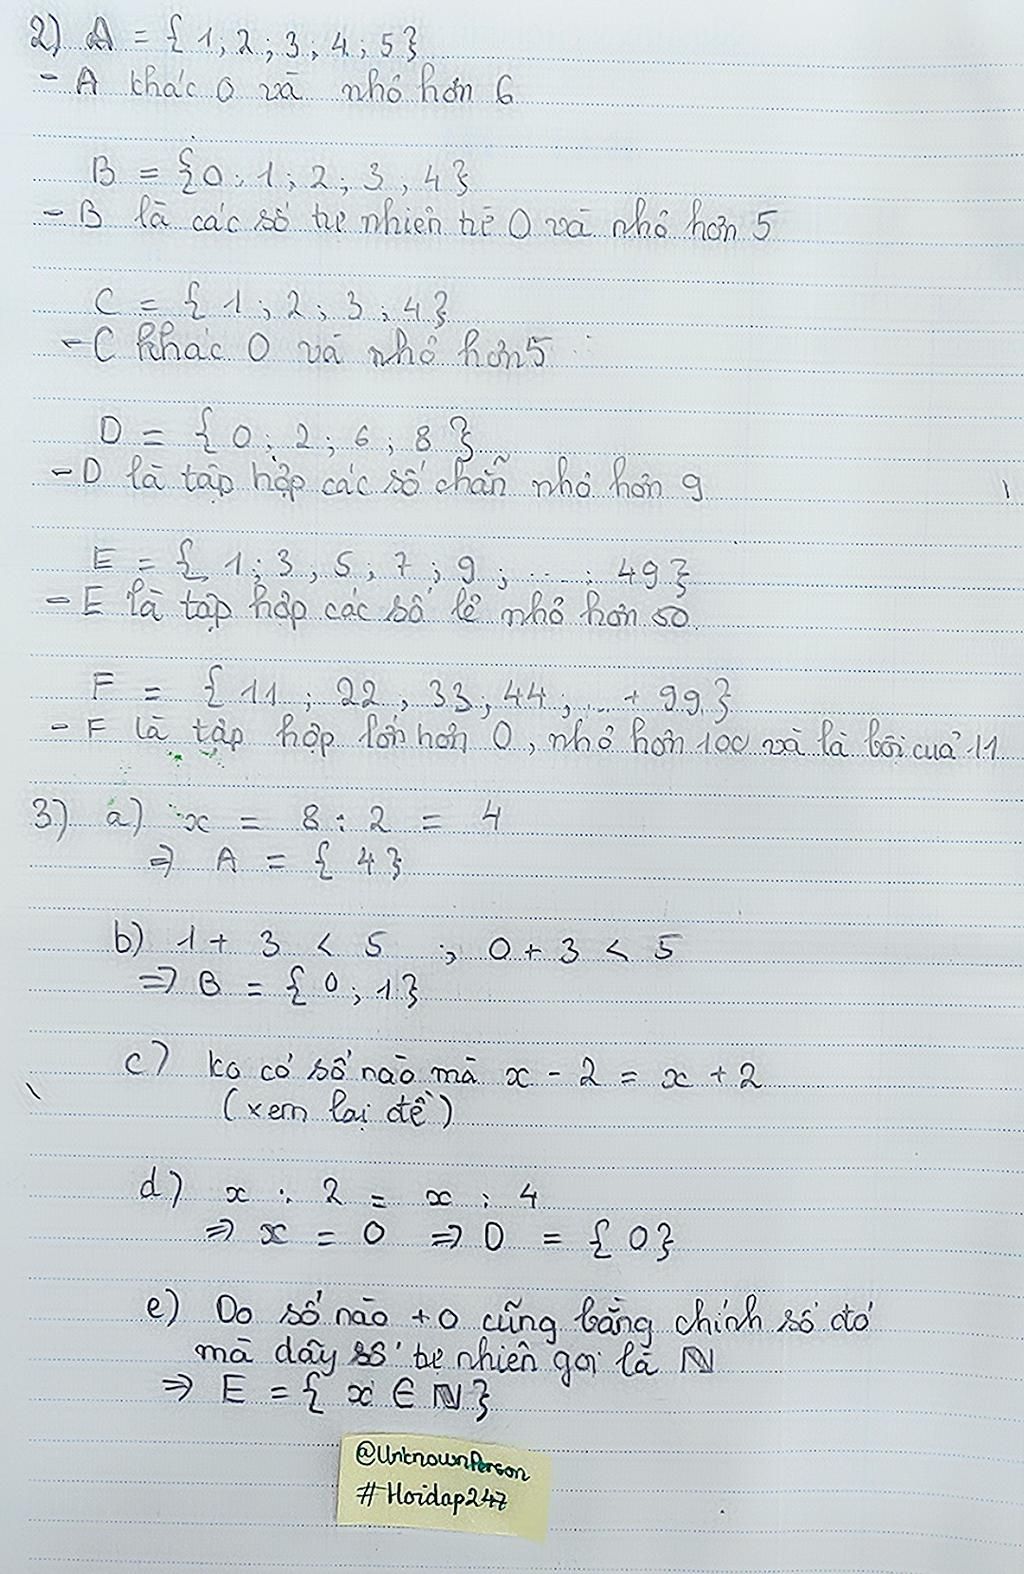 2) A = { 1 ; 2 ; 3 ; 4 ; 5 }
- A khác 0 và nhỏ hơn 6
B = { 0 ; 1 ; 2 ; 3 ; 4 }
- B là các số tự nhiên từ 0 và nhỏ hơn 5
C = { 1 ; 2 ; 3 ; 4 }
- C khác 0 và nhỏ hơn 5
D = { 0 ; 2 ; 6 ; 8 }
- D là tập hợp các số chẵn nhỏ hơn 9
E = { 1 ; 3 , 5 , 7 ; 9 ; ..... ; 49 }
- E là tập hợp các số lẻ nhỏ hơn 50
F = { 11 ; 22 , 33 ; 44 ; ... + 99 }
- F là tập hợp lớn hơn 0 , nhỏ hơn 100 và là bội của 11
3) a) x = 8 : 2 = 4
⇒ A = { 4 }
b) 1 + 3 < 5 ; 0 + 3 < 5
⇒ B = { 0 ; 1 }
c) ko có số nào mà x - 2 = x + 2
(xem lại đề)
d) x : 2 = x : 4
⇒ x = 0 ⇒ D = { 0 }
e) Do số nào + 0 cũng bằng chính số đó
mà dãy số tự nhiên gọi là ℕ
⇒ E = { x ∈ ℕ }
@UnknownPerson
#Hoidap247